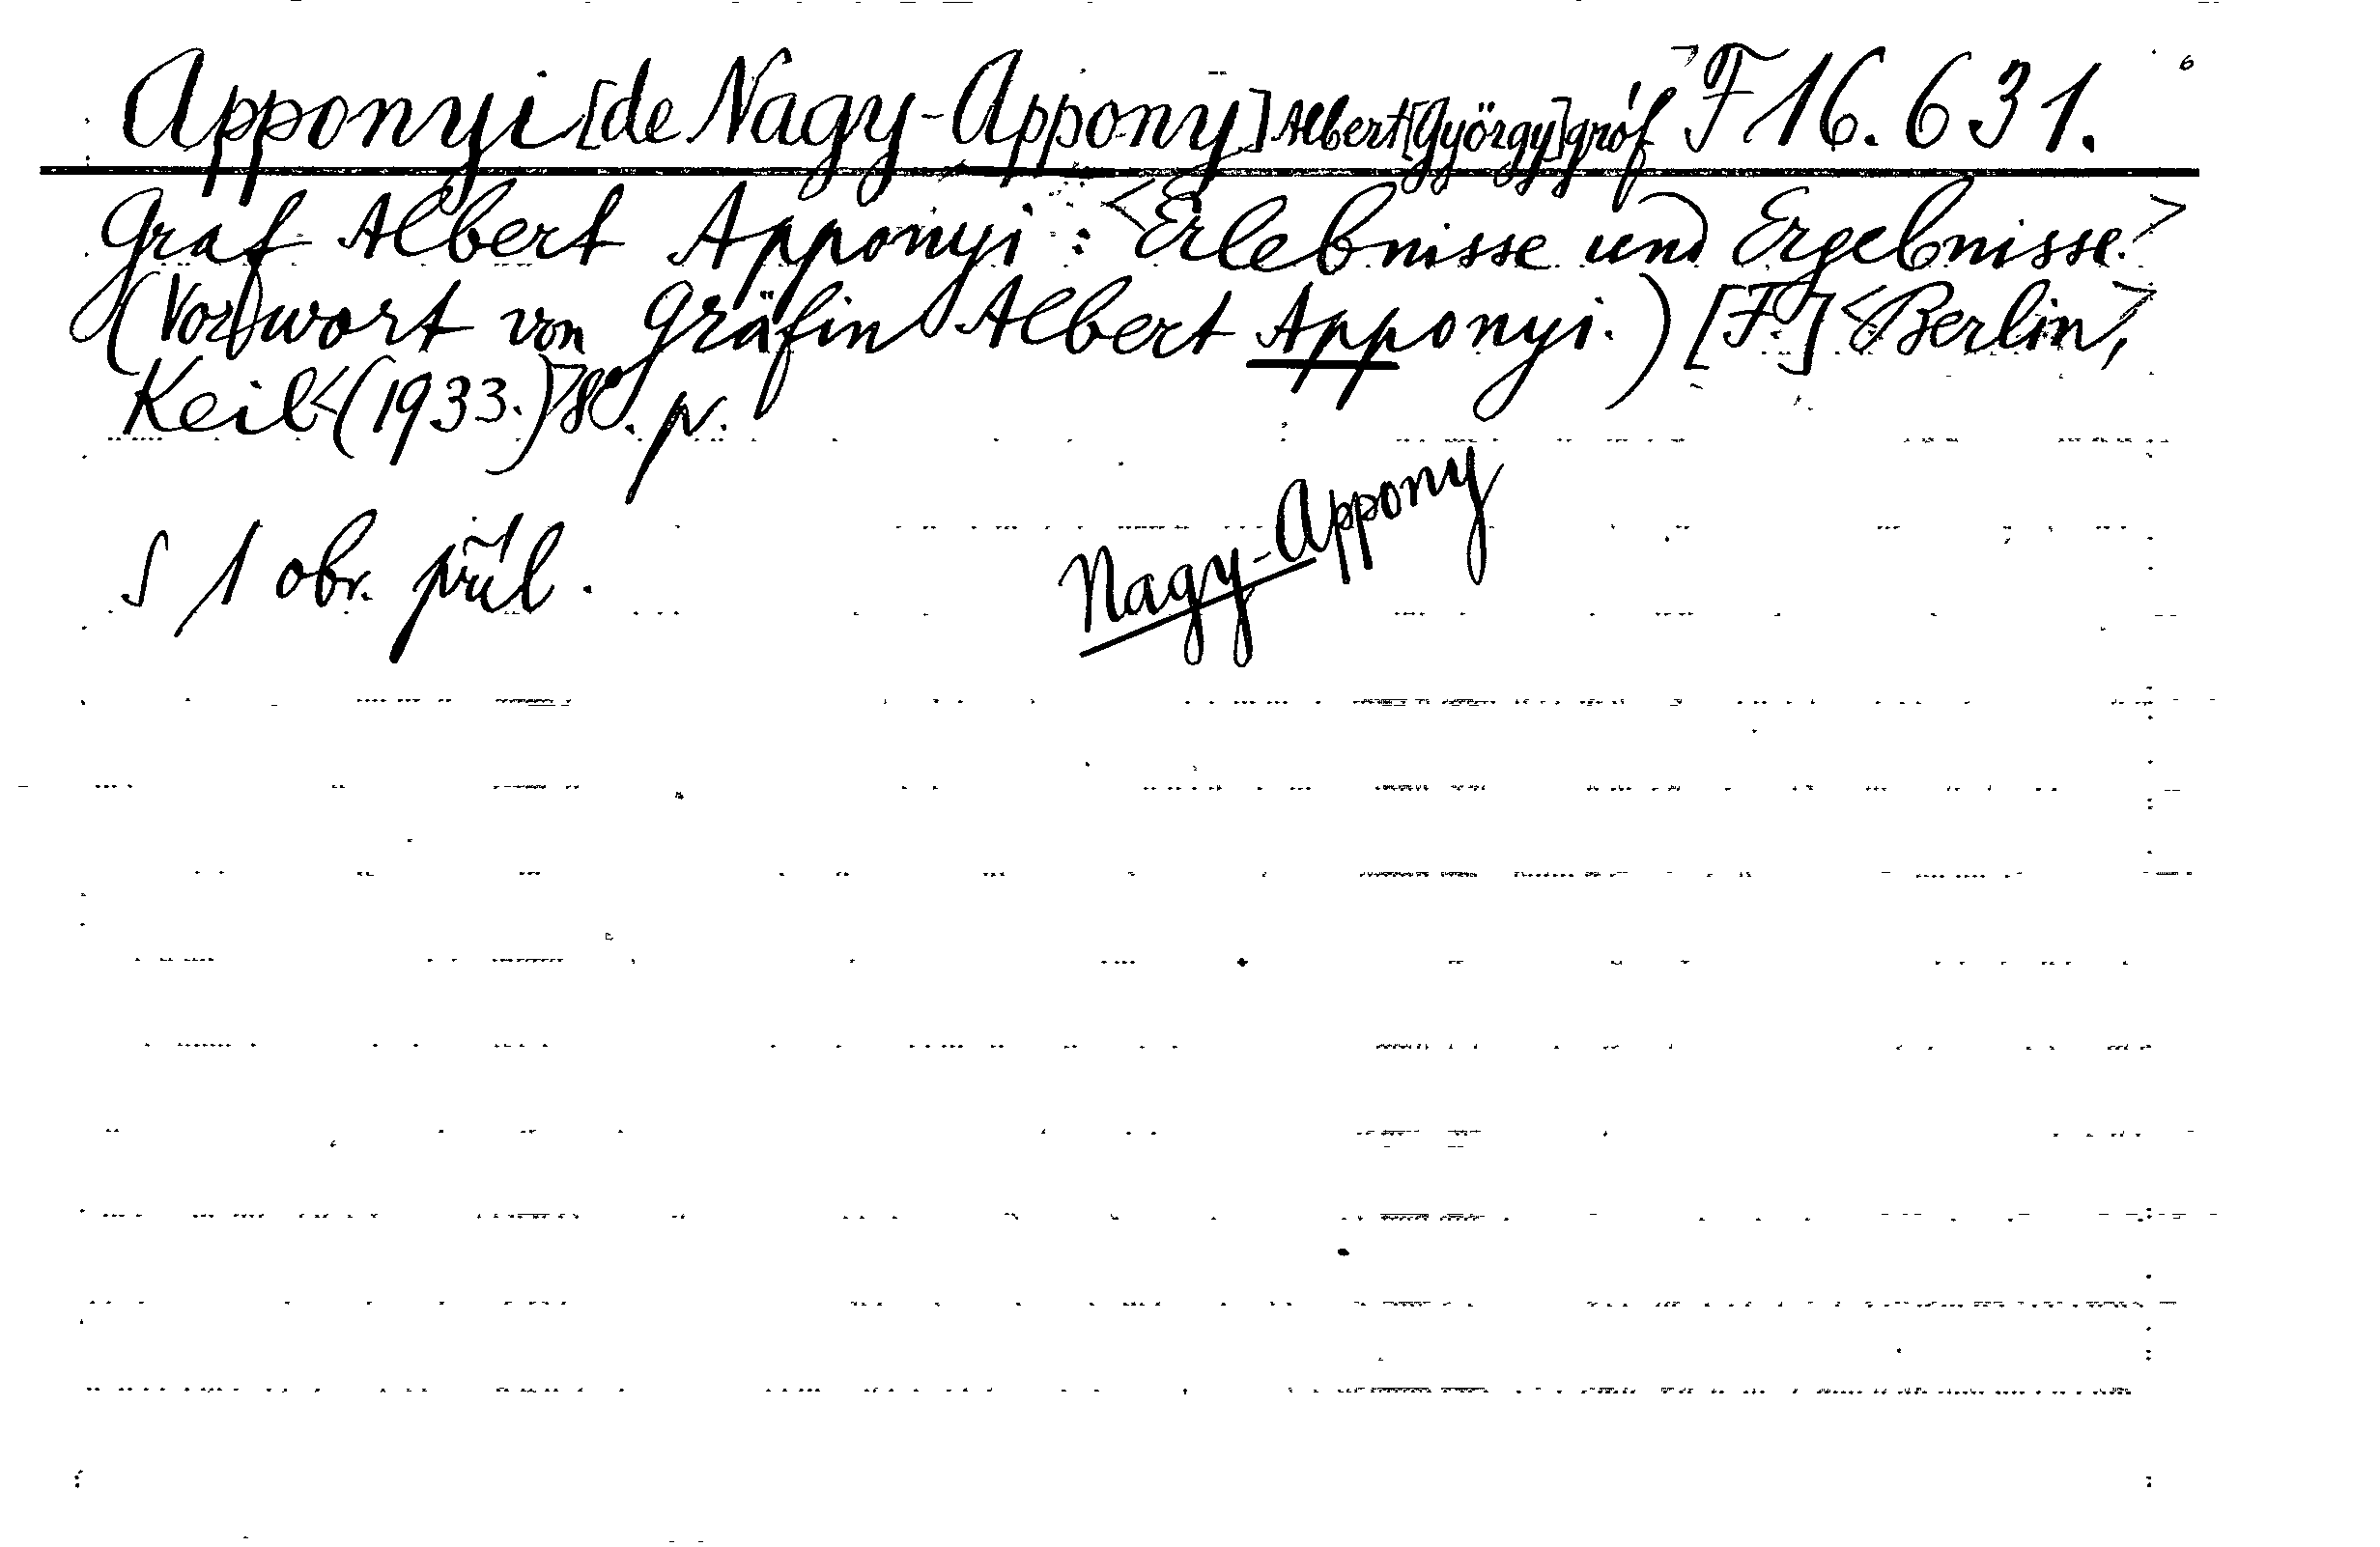 Apponyi [de Nagy-Appony] Albert [György] gróf F 16.631.
Graf Albert Apponyi: <Erlebnisse und Ergebnisse.>
(Vorwort von Gräfin Albert Apponyi.) [F.] <Berlin,>
Keil <(1933.)> 8°. p.
S 1 obr. příl.
Nagy-Appony